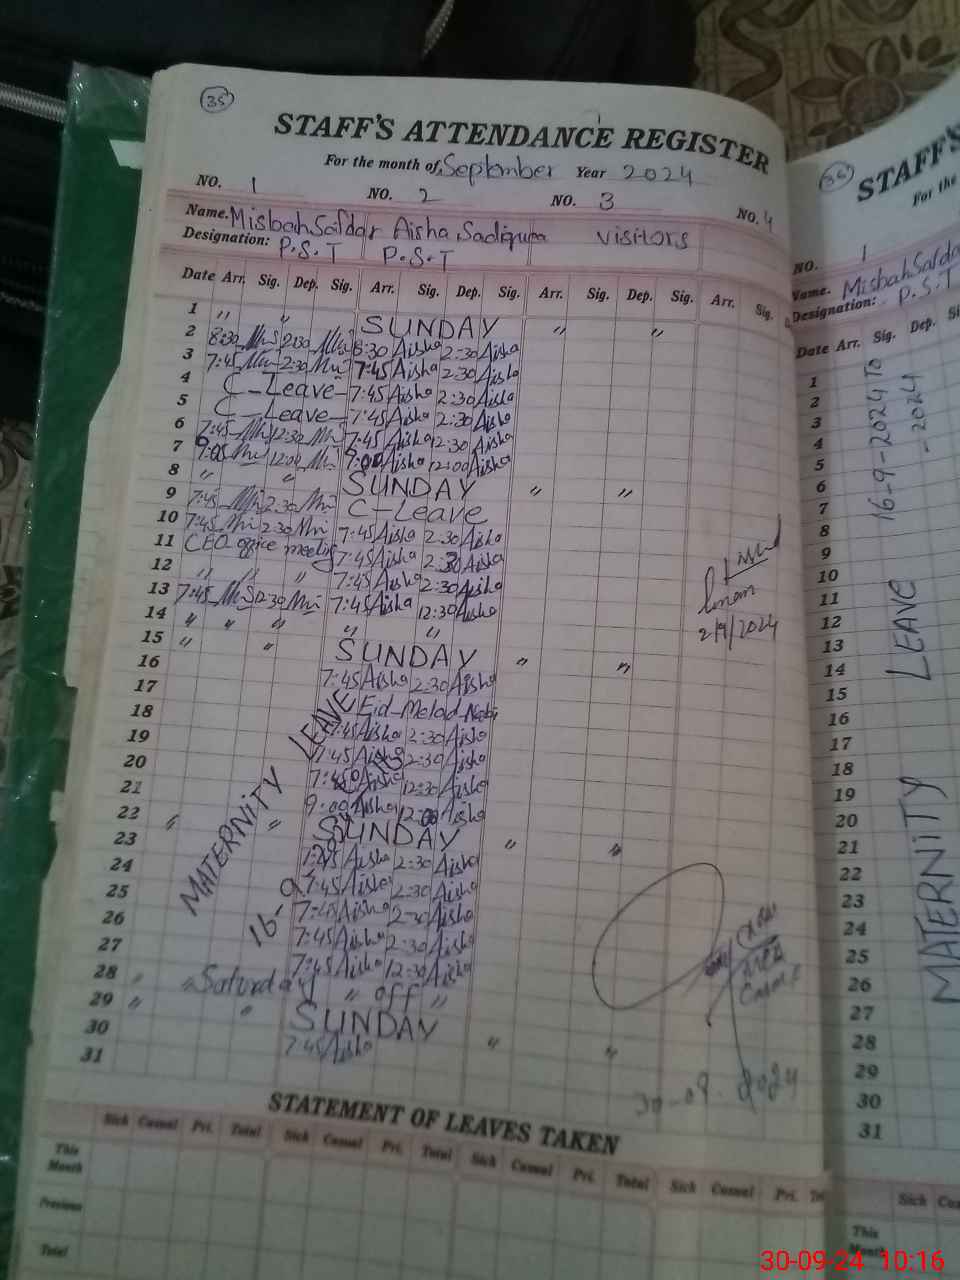 35
STAFF'S ATTENDANCE REGISTER
For the month of September Year 2024
NO. 1 NO. 2 NO. 3 NO. 4
Name. Misbah Safdar Aisha Sadiqua visitors
Designation: P.S.T P.S.T
Date Arr. Sig. Dep. Sig. Arr. Sig. Dep. Sig. Arr. Sig. Dep. Sig. Arr. Sig.
1 " " SUNDAY " "
2 8:30 2:30 8:30 Aisha 2:30 Aisha
3 7:45 2:30 7:45 Aisha 2:30 Aisha
4 C-Leave 7:45 Aisha 2:30 Aisha
5 C-Leave 7:45 Aisha 2:30 Aisha
6 7:45 12:30 7:45 Aisha 12:30 Aisha
7 9:05 12:00 9:00 Aisha 12:00 Aisha
8 " " SUNDAY " "
9 7:45 2:30 C-Leave
10 7:45 2:30 7:45 Aisha 2:30 Aisha
11 CEO office meeting 7:45 Aisha 2:30 Aisha
12 " " " 7:45 Aisha 2:30 Aisha
13 7:45 12:30 7:45 Aisha 12:30 Aisha
14 " " " " "
15 " " SUNDAY " "
16 7:45 Aisha 2:30 Aisha
17 Eid-Melad-Nabi
18 7:45 Aisha 2:30 Aisha
19 7:45 Aisha 2:30 Aisha
20 7:45 Aisha 12:30 Aisha
21 9:00 Aisha 12:00 Aisha
22 " " SUNDAY " "
23 Aisha 2:30 Aisha
24 7:45 Aisha 2:30 Aisha
25 7:45 Aisha 2:30 Aisha
26 7:45 Aisha 2:30 Aisha
27 7:45 Aisha 12:30 Aisha
28 " " Saturday " off "
29 " " SUNDAY " "
30 7:45 Aisha
31
MATERNITY LEAVE
16-9
2/9/2024
30-09-2024
STATEMENT OF LEAVES TAKEN
Sick Casual Pri. Total Sick Casual Pri. Total Sick Casual Pri. Total Sick Casual Pri.
This Month
Previous
Total
STAFF'S
For the
NO. 1
Name. Misbah Safda
Designation: P.S.T
Date Arr. Sig. Dep.
1
2
3
4
5
6
7
8
9
10
11
12
13
14
15
16
17
18
19
20
21
22
23
24
25
26
27
28
29
30
31
MATERNITY LEAVE 16-9-2024 To
-2024
Sick
This Month
30-09-24 10:16